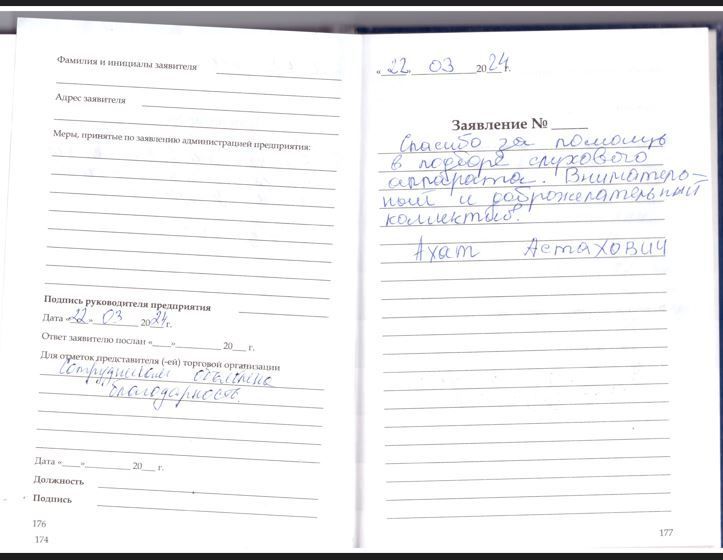 Фамилия и инициалы заявителя
Адрес заявителя
Меры, принятые по заявлению администрацией предприятия:
Подпись руководителя предприятия
Дата «22» 03 2024 г.
Ответ заявителю послан «___»________ 20___ г.
Для отметок представителя (-ей) торговой организации
Сотрудникам объявлена
благодарность.
Дата «___»________ 20___ г.
Должность
Подпись
176
174
«22» 03 2024 г.
Заявление № ____
Спасибо за помощь
в подборе слухового
аппарата. Вниматель-
ный и доброжелательный
коллектив.
Ахат Астахович
177